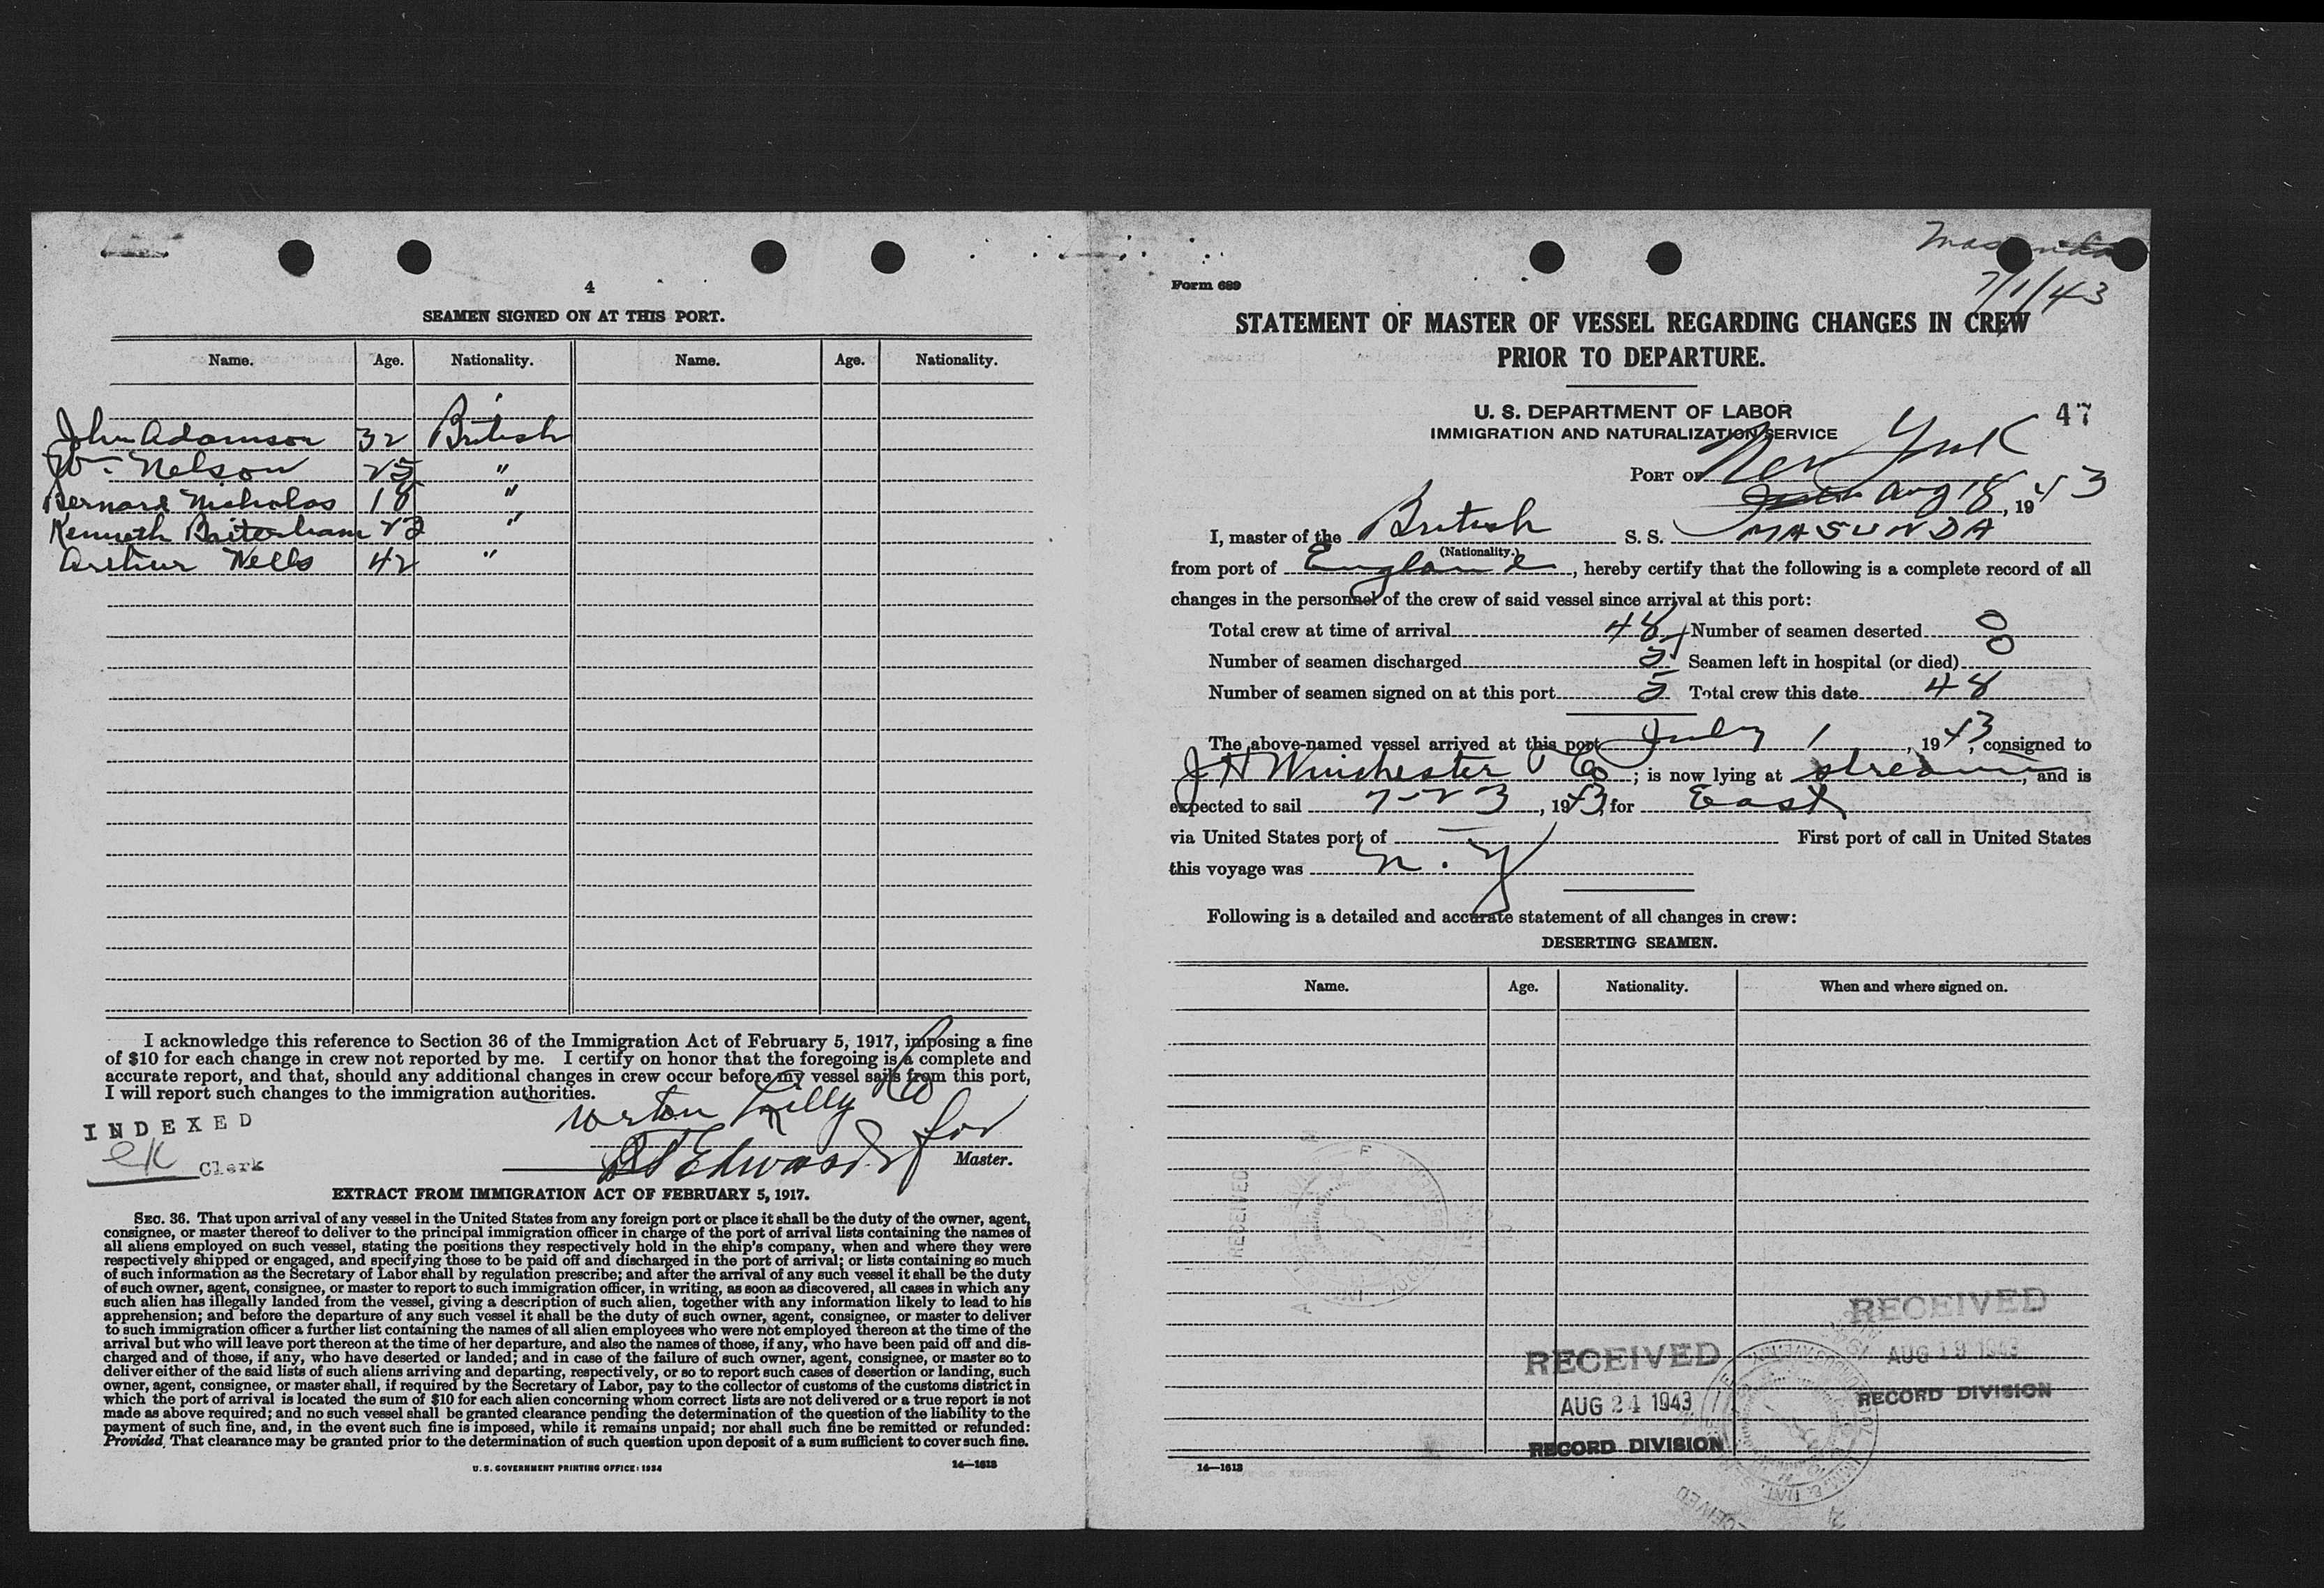 4
SEAMEN SIGNED ON AT THIS PORT.
Name. Age. Nationality. Name. Age. Nationality.
John Adamson 32 British
Wm. Nelson 25 "
Bernard Nicholas 18 "
Kenneth 23 "
Arthur Wells 42 "
I acknowledge this reference to Section 36 of the Immigration Act of February 5, 1917, imposing a fine
of $10 for each change in crew not reported by me. I certify on honor that the foregoing is a complete and
accurate report, and that, should any additional changes in crew occur before my vessel sails from this port,
I will report such changes to the immigration authorities.
Norton Lilly Co
for
INDEXED
EK Clerk
Edwards
Master.
EXTRACT FROM IMMIGRATION ACT OF FEBRUARY 5, 1917.
SEC. 36. That upon arrival of any vessel in the United States from any foreign port or place it shall be the duty of the owner, agent,
consignee, or master thereof to deliver to the principal immigration officer in charge of the port of arrival lists containing the names of
all aliens employed on such vessel, stating the positions they respectively hold in the ship's company, when and where they were
respectively shipped or engaged, and specifying those to be paid off and discharged in the port of arrival; or lists containing so much
of such information as the Secretary of Labor shall by regulation prescribe; and after the arrival of any such vessel it shall be the duty
of such owner, agent, consignee, or master to report to such immigration officer, in writing, as soon as discovered, all cases in which any
such alien has illegally landed from the vessel, giving a description of such alien, together with any information likely to lead to his
apprehension; and before the departure of any such vessel it shall be the duty of such owner, agent, consignee, or master to deliver
to such immigration officer a further list containing the names of all alien employees who were not employed thereon at the time of the
arrival but who will leave port thereon at the time of her departure, and also the names of those, if any, who have been paid off and dis-
charged and of those, if any, who have deserted or landed; and in case of the failure of such owner, agent, consignee, or master so to
deliver either of the said lists of such aliens arriving and departing, respectively, or so to report such cases of desertion or landing, such
owner, agent, consignee, or master shall, if required by the Secretary of Labor, pay to the collector of customs of the customs district in
which the port of arrival is located the sum of $10 for each alien concerning whom correct lists are not delivered or a true report is not
made as above required; and no such vessel shall be granted clearance pending the determination of the question of the liability to the
payment of such fine, and, in the event such fine is imposed, while it remains unpaid; nor shall such fine be remitted or refunded:
Provided, That clearance may be granted prior to the determination of such question upon deposit of a sum sufficient to cover such fine.
U. S. GOVERNMENT PRINTING OFFICE: 1934 14—1613
Masunda
7/1/43
Form 689
STATEMENT OF MASTER OF VESSEL REGARDING CHANGES IN CREW
PRIOR TO DEPARTURE.
U. S. DEPARTMENT OF LABOR
IMMIGRATION AND NATURALIZATION SERVICE
47
PORT OF New York
Aug 18, 1943
I, master of the British S. S. MASUNDA
(Nationality.)
from port of England, hereby certify that the following is a complete record of all
changes in the personnel of the crew of said vessel since arrival at this port:
Total crew at time of arrival 48 Number of seamen deserted 0
Number of seamen discharged 5 Seamen left in hospital (or died) 0
Number of seamen signed on at this port 5 Total crew this date 48
The above-named vessel arrived at this port July 1, 1943, consigned to
J H Winchester & Co; is now lying at stream, and is
expected to sail 7-23, 1943, for East
via United States port of — First port of call in United States
this voyage was N. Y
Following is a detailed and accurate statement of all changes in crew:
DESERTING SEAMEN.
Name. Age. Nationality. When and where signed on.
RECEIVED
RECEIVED
AUG 19 1943
RECORD DIVISION
RECEIVED
AUG 24 1943
RECORD DIVISION
14—1613